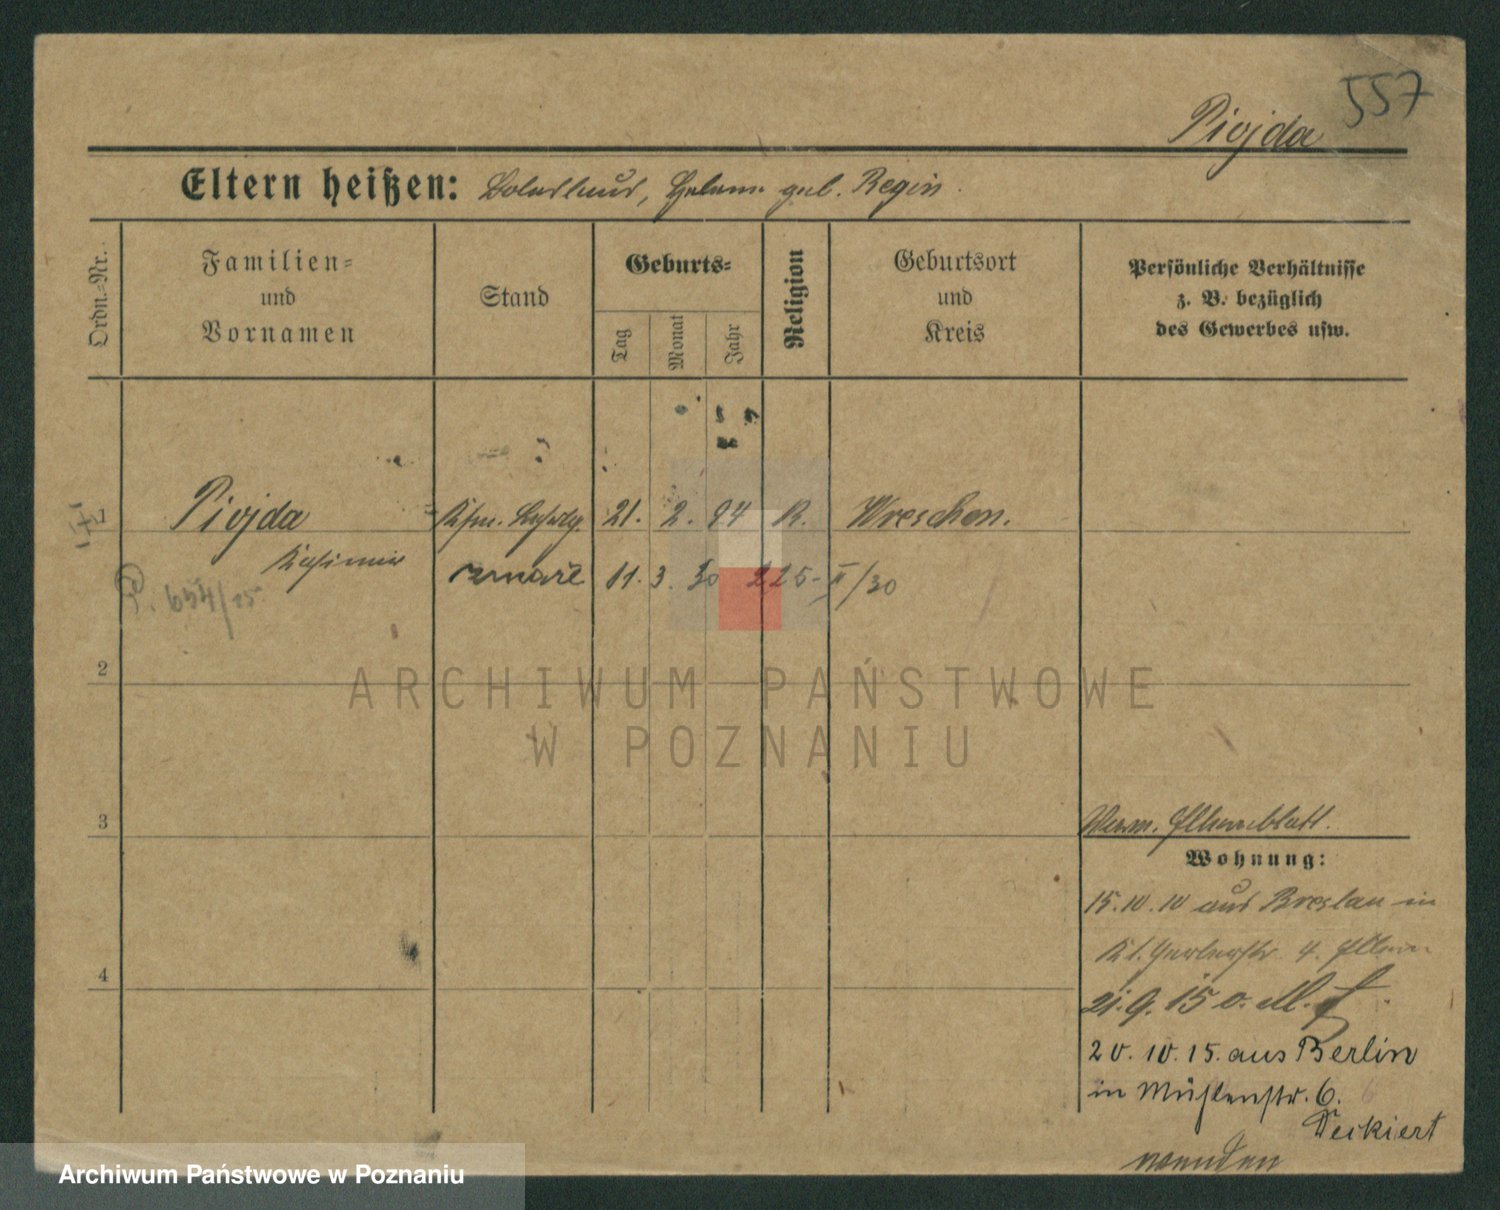 557
Piojda
Eltern heißen: geb. Regin.
Ordn.-Nr.
Familien-
und
Vornamen
Stand
Geburts-
Tag
Monat
Jahr
Religion
Geburtsort
und
Kreis
Persönliche Verhältnisse
z. B. bezüglich
des Gewerbes usw.
Piojda
Kasimir
Kfm. 21. 2. 94 R. Wreschen.
zmarł 11. 3. 30 225-II/30
P. 654/15
2
3
4
Verm. Elternblatt.
Wohnung:
15.10.10 aus Breslau in
Kl. Gerberstr. 4. Eltern
21.9.15 o. M.
20.10.15. aus Berlin
in Mühlenstr. 6.
Deikiert
wenden
ARCHIWUM PAŃSTWOWE
W POZNANIU
Archiwum Państwowe w Poznaniu